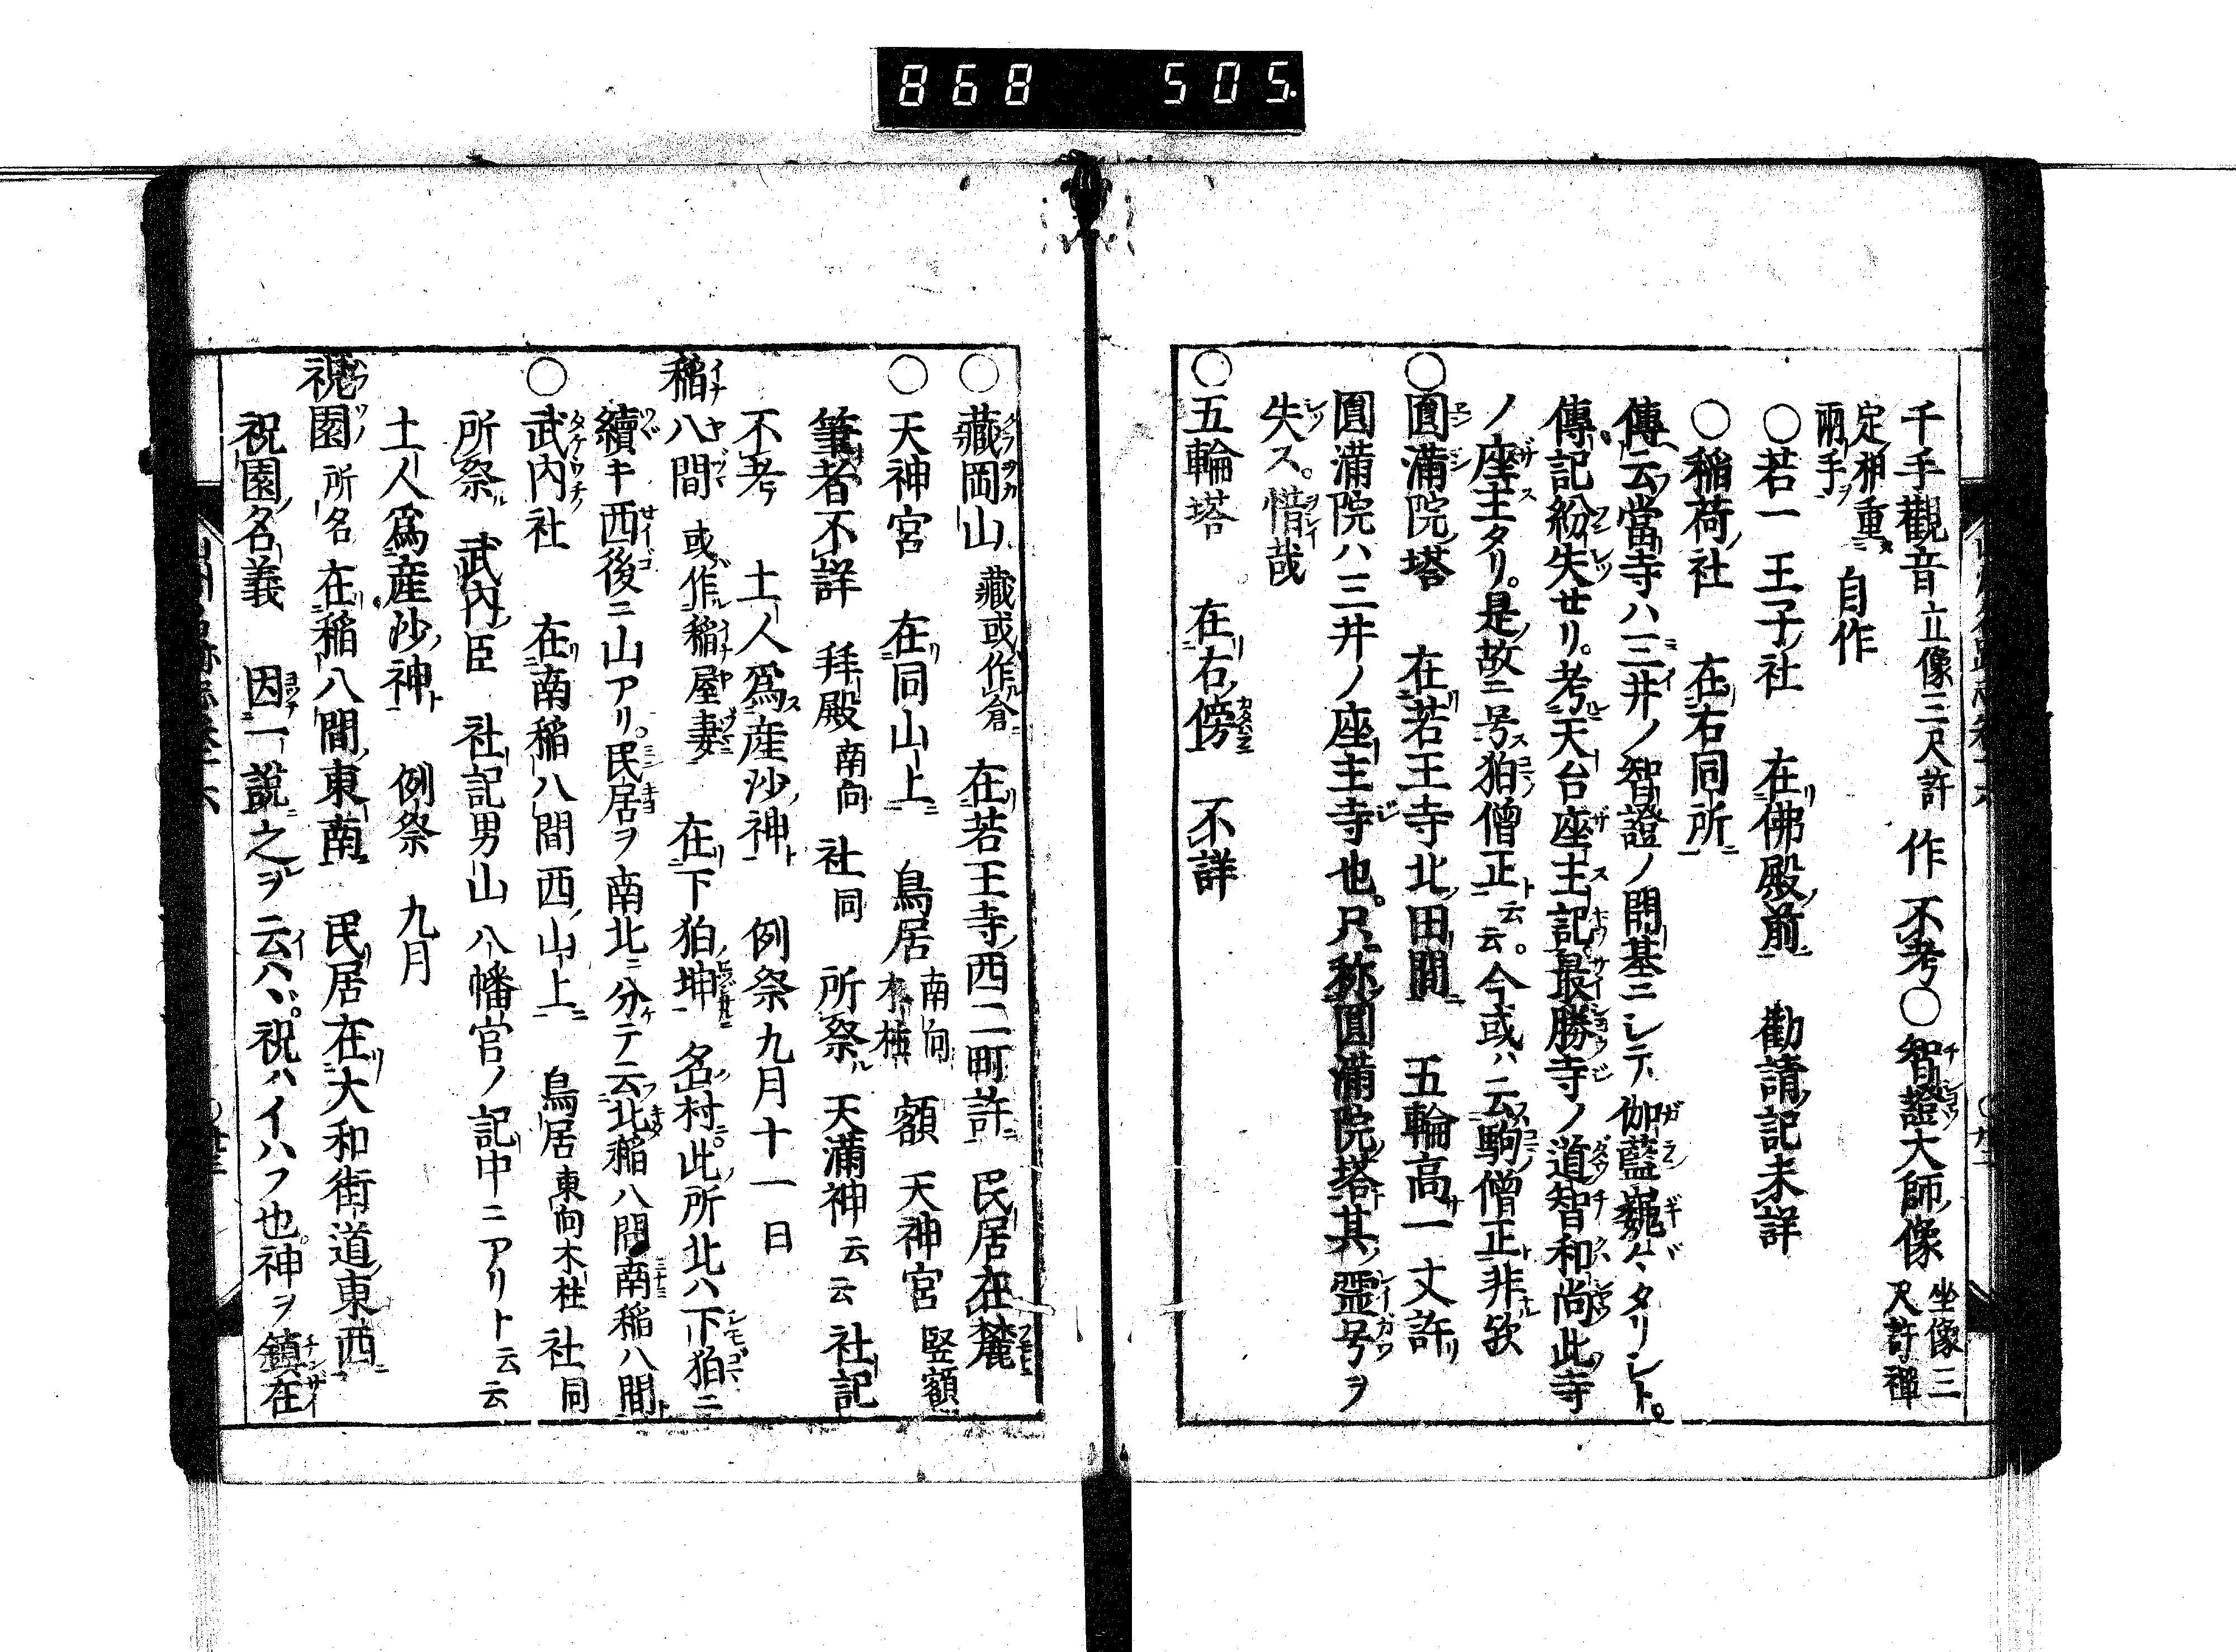 868 505.
千手觀音 立像三尺許 作 不考○智證大師像 坐像三尺許禪
定相重兩手 自作
○若一王子社 在佛殿前 勸請記未詳
○稲荷社 在右同所
傳云當寺ハ三井ノ智證ノ開基ニシテ伽藍巍〻タリシト。
傳記紛失セリ。考天台座主記最勝寺ノ道智和尚此寺
ノ座主タリ。是故ニ号狛僧正云云。今或ハ云駒僧正非欤
○圓満院塔 在若王寺北田間 五輪高一丈許
圓満院ハ三井ノ座主寺也。只称圓満院塔其霊号ヲ
失ス。惜哉
○五輪塔 在右傍 不詳
○藏岡山 藏或作倉 在若王寺西二町許 民居在麓
○天神宮 在同山上 鳥居 南向木柱 額 天神宮 竪額
筆者不詳 拜殿 南向 社 同 所祭 天満神 云云 社記
不考 土人爲産沙神 例祭九月十一日
稲八間 或作稲屋妻 在下狛坤 名村此所北ハ下狛ニ
續キ西後ニ山アリ。民居ヲ南北ニ分テ云北稲八間南稲八間
○武内社 在南稲八間西山上 鳥居 東向木柱 社 同
所祭 武内臣 社記男山八幡宮ノ記中ニアリト云云
土人爲産沙神 例祭 九月
祝園 所名 在稲八間東南 民居在大和街道東西
祝園名義 因一說之ヲ云ハヾ。祝ハイハフ也神ヲ鎮在